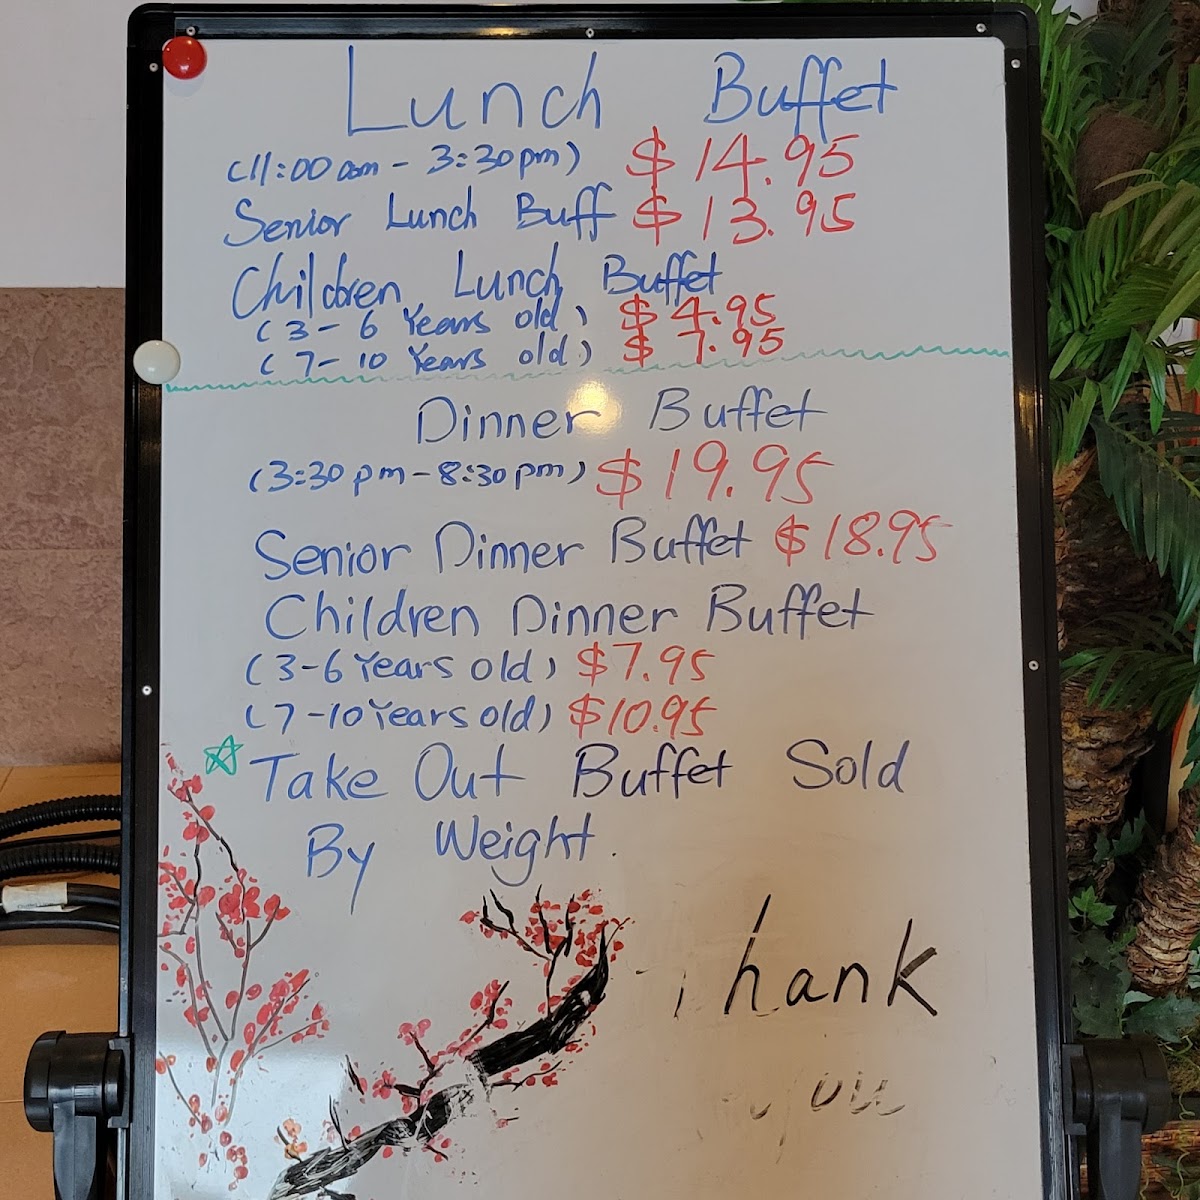 Lunch Buffet
(11:00am - 3:30pm) $14.95
Senior Lunch Buff $13.95
Children Lunch Buffet
(3-6 Years old) $4.95
(7-10 Years old) $7.95
Dinner Buffet
(3:30pm-8:30pm) $19.95
Senior Dinner Buffet $18.95
Children Dinner Buffet
(3-6 Years old) $7.95
(7-10 Years old) $10.95
Take Out Buffet Sold
By Weight.
Thank
you